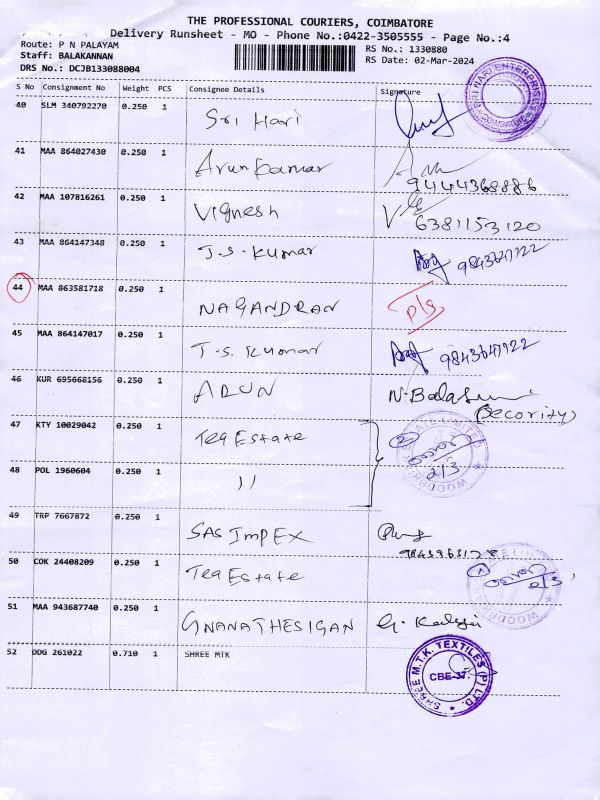 THE PROFESSIONAL COURIERS, COIMBATORE
Delivery Runsheet - MO - Phone No.:0422-3505555 - Page No.:4
Route: P N PALAYAM
Staff: BALAKANNAN
DRS No.: DCJB133088004
RS No.: 1330880
RS Date: 02-Mar-2024
S No Consignment No Weight PCS Consignee Details Signature
40 SLM 340792270 0.250 1 Sri Hari
41 MAA 864027430 0.250 1 Arun Kumar 9444368886
42 MAA 107816261 0.250 1 Vignesh 6381153120
43 MAA 864147348 0.250 1 J.S. Kumar
44 MAA 863581718 0.250 1 NAGANDRAN
45 MAA 864147017 0.250 1 J.S. Kumar
46 KUR 695668156 0.250 1 ARUN (Secority)
47 KTY 10029042 0.250 1 Tea Estate 2 2/3
48 POL 1960604 0.250 1 11
49 TRP 7667872 0.250 1 SAS ImpEX
50 COK 24408209 0.250 1 Tea Estate 1 2/3
51 MAA 943687740 0.250 1 GNANATHESIGAN
52 DDG 261022 0.710 1 SHREE MTK
SHREE M.T.K. TEXTILES (P) LTD.
CBE-37.